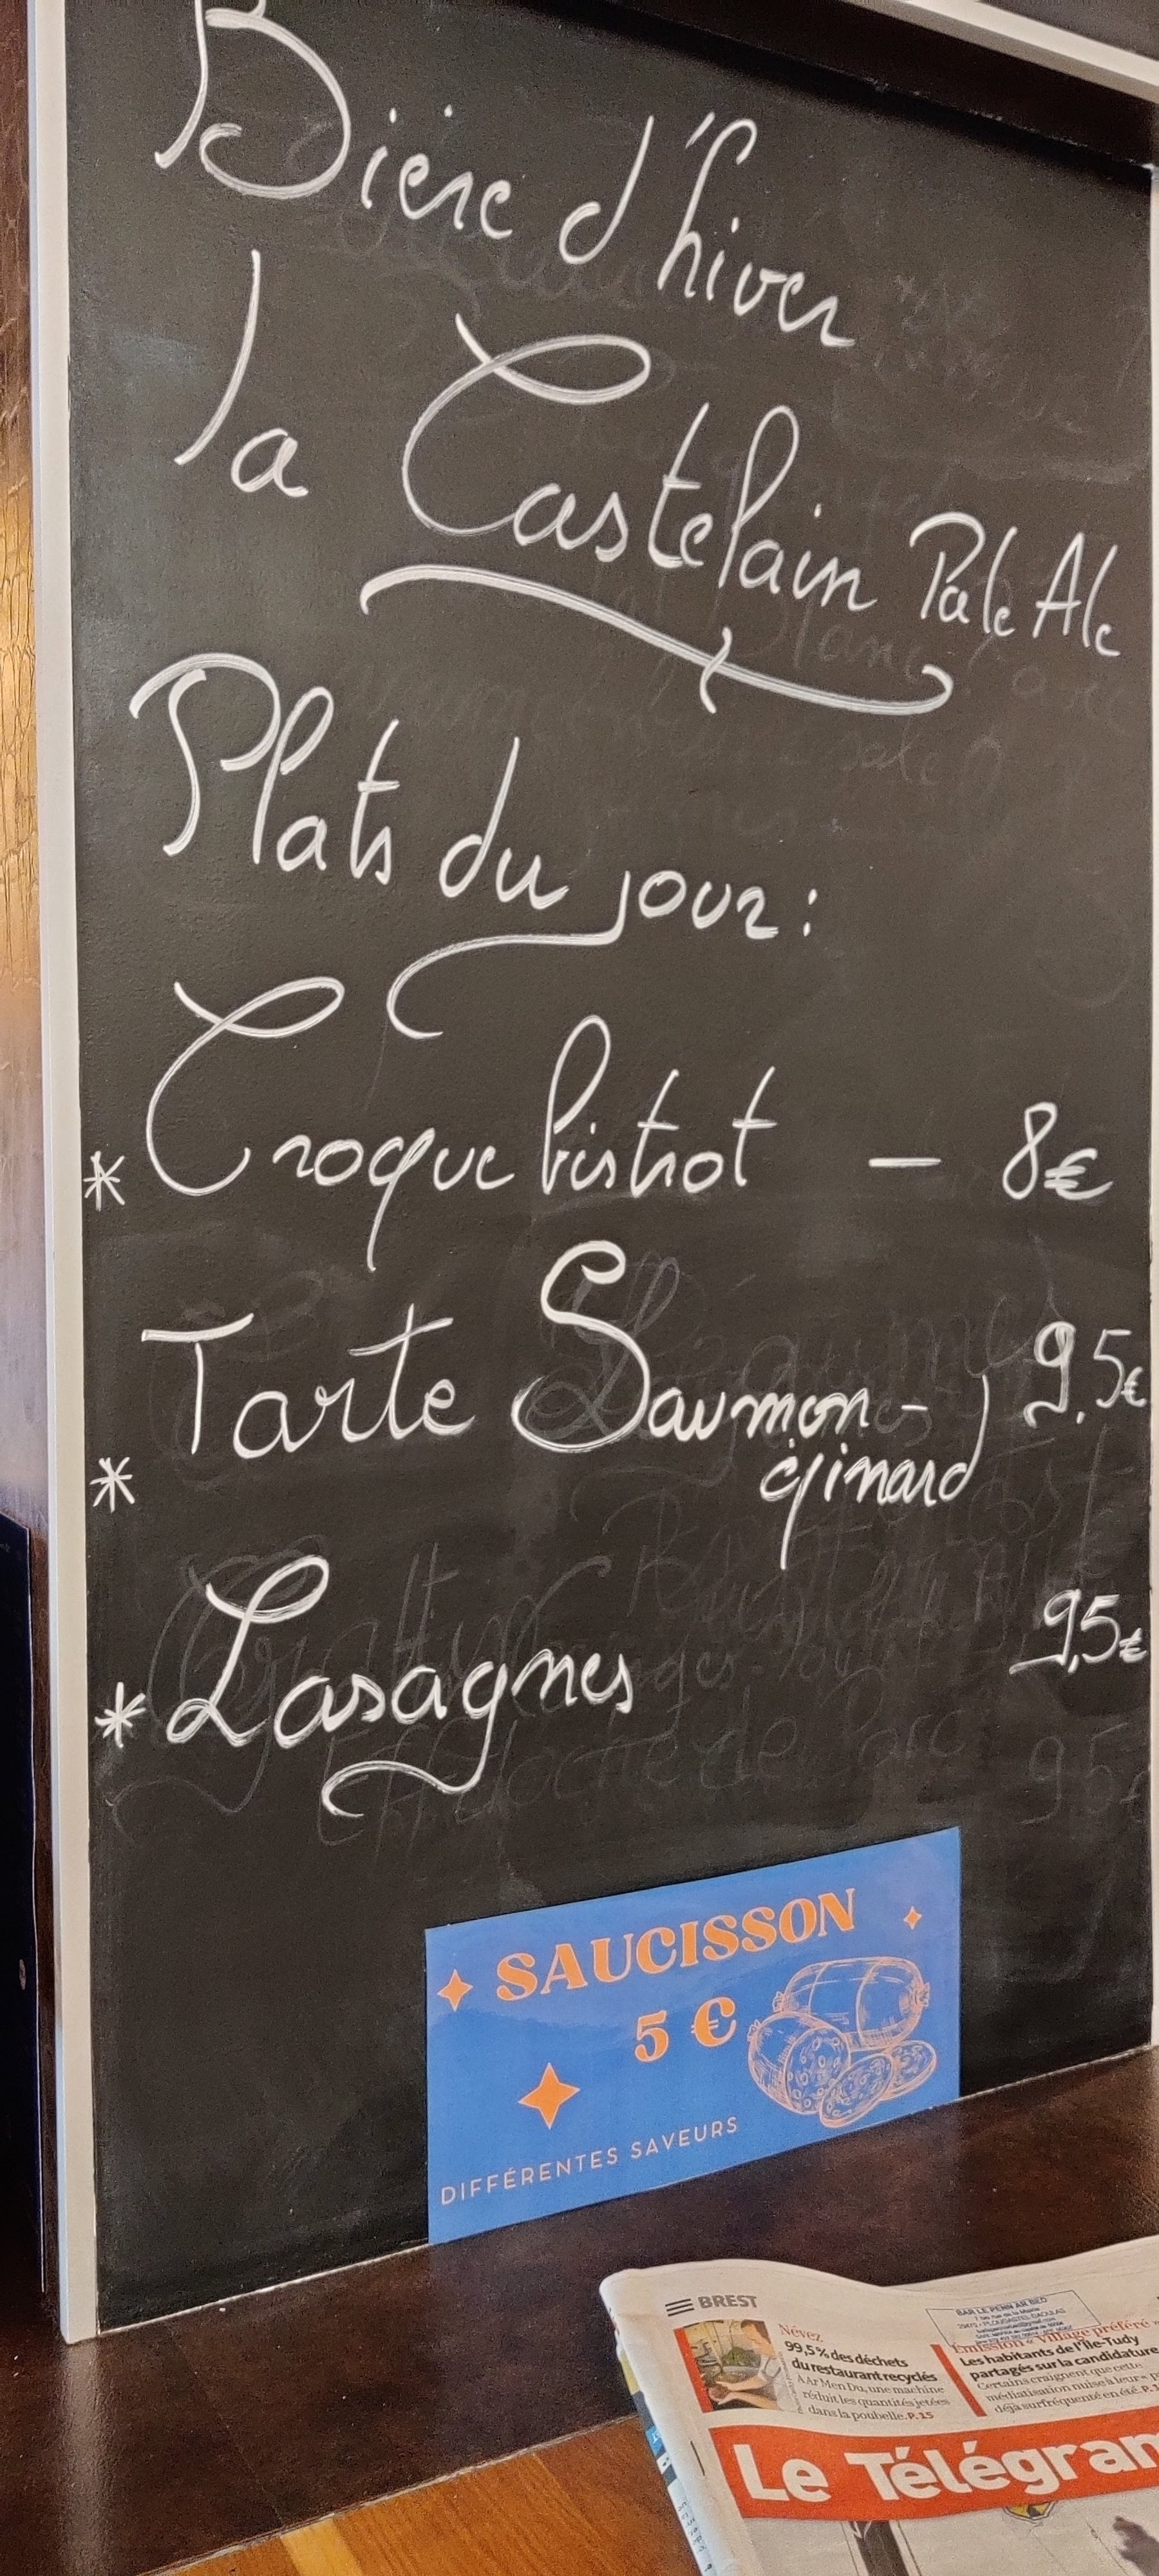 Bière d'hiver
la Castelain Pale Ale
Plats du jour:
* Croque bistrot – 8€
* Tarte Saumon- 9,5€
épinard
* Lasagnes 9,5€
Effilochée de Porc 9,5€
SAUCISSON
5 €
DIFFÉRENTES SAVEURS
BREST
BAR LE PENN AR BED
Névez
99,5 % des déchets
du restaurant recyclés
À Ar Men Du, une machine
réduit les quantités jetées
dans la poubelle. P. 15
Émission « Village préféré »
Les habitants de l'Île-Tudy
partagés sur la candidature
Certains craignent que cette
médiatisation nuise à leur
déjà surfréquenté en été. P.
Le Télégram